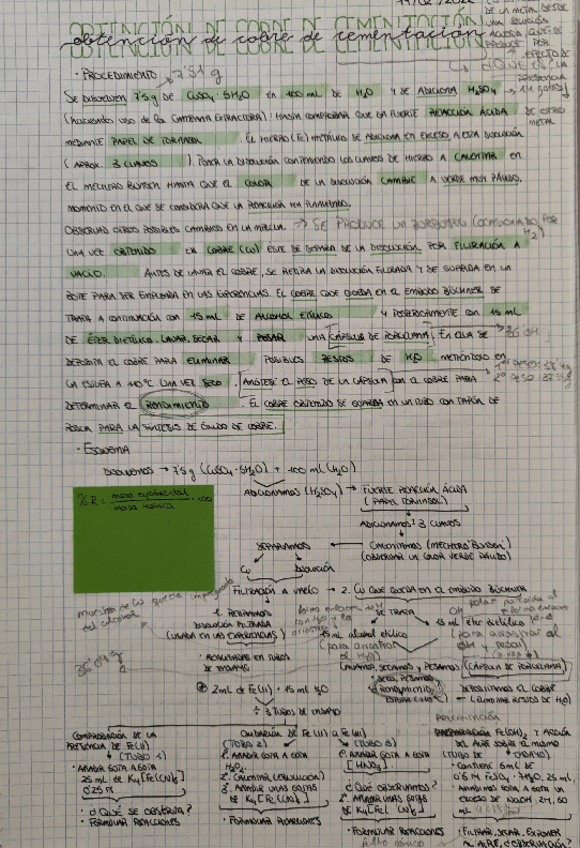 OBTENCIÓN DE COBRE DE CEMENTACIÓN
obtención de cobre de cementación
· PROCEDIMIENTO
SE DISUELVEN 7'5 g DE CuSO4 · 5H2O EN 100 mL DE H2O Y SE ADICIONA H2SO4
(HACIENDO USO DE LA CAMPANA EXTRACTORA) HASTA COMPROBAR QUE DA FUERTE REACCIÓN ÁCIDA
MEDIANTE PAPEL DE TORNASOL. EL HIERRO (Fe) METÁLICO SE ADICIONA EN EXCESO A ESTA DISOLUCIÓN
(APROX. 3 CLAVOS). PONER LA DISOLUCIÓN CONTENIENDO LOS CLAVOS DE HIERRO A CALENTAR EN
EL MECHERO BUNSEN HASTA QUE EL COLOR DE LA DISOLUCIÓN CAMBIE A VERDE MUY PÁLIDO,
MOMENTO EN EL QUE SE CONSIDERA QUE LA REACCIÓN HA FINALIZADO.
OBSERVAR OTROS POSIBLES CAMBIOS EN LA MEZCLA. → SE PRODUCE UN BURBUJEO (OCASIONADO POR H2)
UNA VEZ OBTENIDO EL COBRE (Cu) ESTE SE SEPARA DE LA DISOLUCIÓN POR FILTRACIÓN A
VACÍO. ANTES DE LAVAR EL COBRE, SE RETIRA LA DISOLUCIÓN FILTRADA Y SE GUARDA EN UN
BOTE PARA SER EMPLEADA EN LAS EXPERIENCIAS. EL COBRE QUE QUEDA EN EL EMBUDO BÜCHNER SE
TRATA A CONTINUACIÓN CON 15 mL DE ALCOHOL ETÍLICO Y POSTERIORMENTE CON 15 mL
DE ÉTER DIETÍLICO. LAVAR, SECAR Y PESAR UNA CÁPSULA DE PORCELANA EN LA QUE SE
DEPOSITA EL COBRE PARA ELIMINAR POSIBLES RESTOS DE H2O METIÉNDOLO EN
LA ESTUFA A 110°C. UNA VEZ SECO, ANÓTESE EL PESO DE LA CÁPSULA CON EL COBRE PARA
DETERMINAR EL RENDIMIENTO. EL COBRE OBTENIDO SE GUARDA EN UN TUBO CON TAPÓN DE
ROSCA PARA LA SÍNTESIS DE ÓXIDO DE COBRE.
· ESQUEMA
DISOLVEMOS → 7'5 g (CuSO4 · 5H2O) + 100 mL (H2O)
% R = masa experimental / masa teórica · 100
ADICIONAMOS (H2SO4) → FUERTE REACCIÓN ÁCIDA
(PAPEL TORNASOL)
ADICIONAMOS 3 CLAVOS
SEPARAMOS ← CALENTAMOS (MECHERO BUNSEN)
(OBSERVAR UN COLOR VERDE PÁLIDO)
Cu DISOLUCIÓN
FILTRACIÓN A VACÍO → 2. Cu QUE QUEDA EN EL EMBUDO BÜCHNER
1. RETIRAMOS
DISOLUCIÓN FILTRADA
(USADA EN LAS EXPERIENCIAS)
SE TRATA
15 mL alcohol etílico
(para arrastrar
15 mL éter dietílico
(para arrastrar al
OH y pesar)
LAVAMOS, SECAMOS Y PESAMOS (CÁPSULA DE PORCELANA)
DEPOSITAMOS EL COBRE
(ELIMINAR RESTOS DE H2O)
¿RENDIMIENTO?
ESTUFA (110°C)
36'04 g
2 mL de Fe(II) + 15 mL H2O
÷ 3 TUBOS DE ENSAYO
COMPROBACIÓN DE LA
PRESENCIA DE Fe(II)
(TUBO 1)
· AÑADIR GOTA A GOTA
25 mL DE K4[Fe(CN)6]
0'25 M
· ¿QUÉ SE OBSERVA?
· FORMULAR REACCIONES
OXIDACIÓN DE Fe(II) A Fe(III)
(TUBO 2)
1º. AÑADIR GOTA A GOTA
H2O2
2º. CALENTAR (EBULLICIÓN)
3º. AÑADIR UNAS GOTAS
DE K4[Fe(CN)6]
· FORMULAR REACCIONES
(TUBO 3)
1º. AÑADIR GOTA A GOTA
[HNO3]
¿QUÉ OBSERVAMOS?
2º. AÑADIR UNAS GOTAS
DE K4[Fe(CN)6]
· FORMULAR REACCIONES
PRECIPITACIÓN Fe(OH)2 Y ACCIÓN
DEL AIRE SOBRE EL MISMO
(TUBO DE ENSAYO)
· CONTIENE 5 mL DE
0'5 M FeSO4 · 7H2O, 25 mL
· AÑADIMOS GOTA A GOTA UN
EXCESO DE NaOH, 2M, 60
mL
· FILTRAR, SECAR, EXPONER
AL AIRE, ¿OBSERVACIÓN?